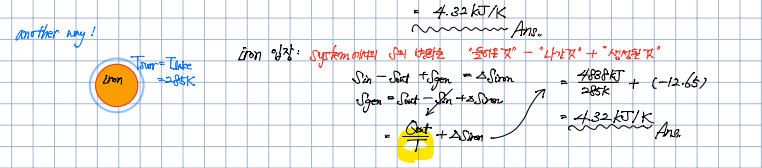 = 4.32 kJ/K
Ans.
another way!
iron
Tsurr = Tlake
= 285K
iron 입장: System에서의 S의 변화는 "들어온 것" - "나간 것" + "생성된 것"
Sin - Sout + Sgen = ΔSiron
Sgen = Sout - Sin + ΔSiron
= Qout/T + ΔSiron
= 4838kJ/285K + (-12.65)
= 4.32 kJ/K
Ans.